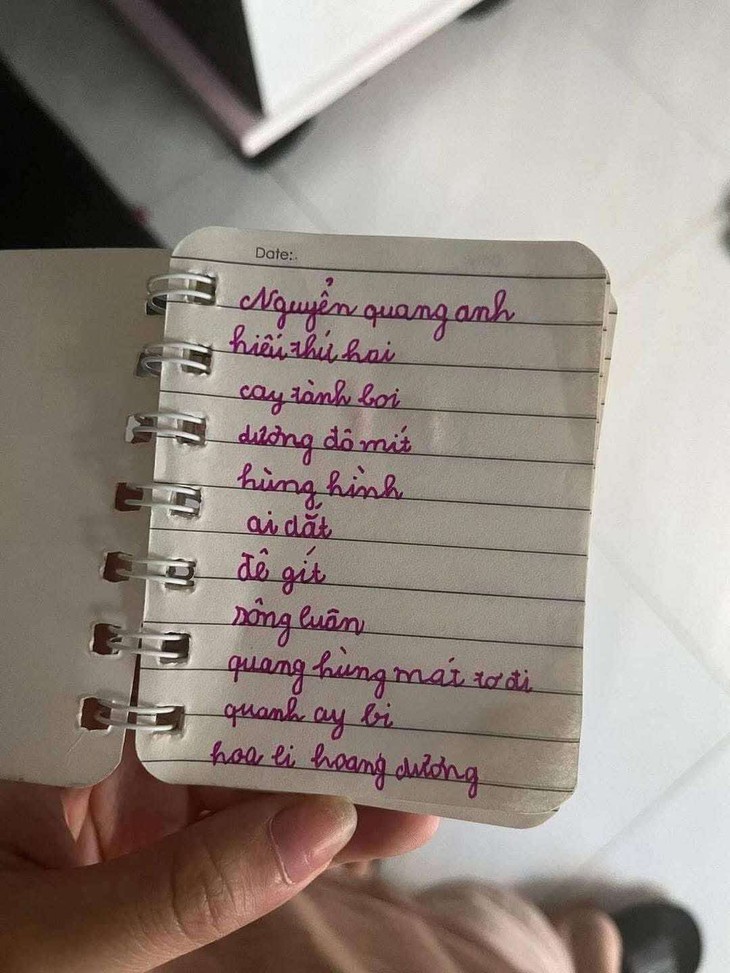 Date:
Nguyển quang anh
hiếu thứ hai
cay tành boi
dương đô mít
hùng hình
ai dắt
đê gít
sông luân
quang hùng mát tơ đi
quanh ay bi
hoa li hoang dương